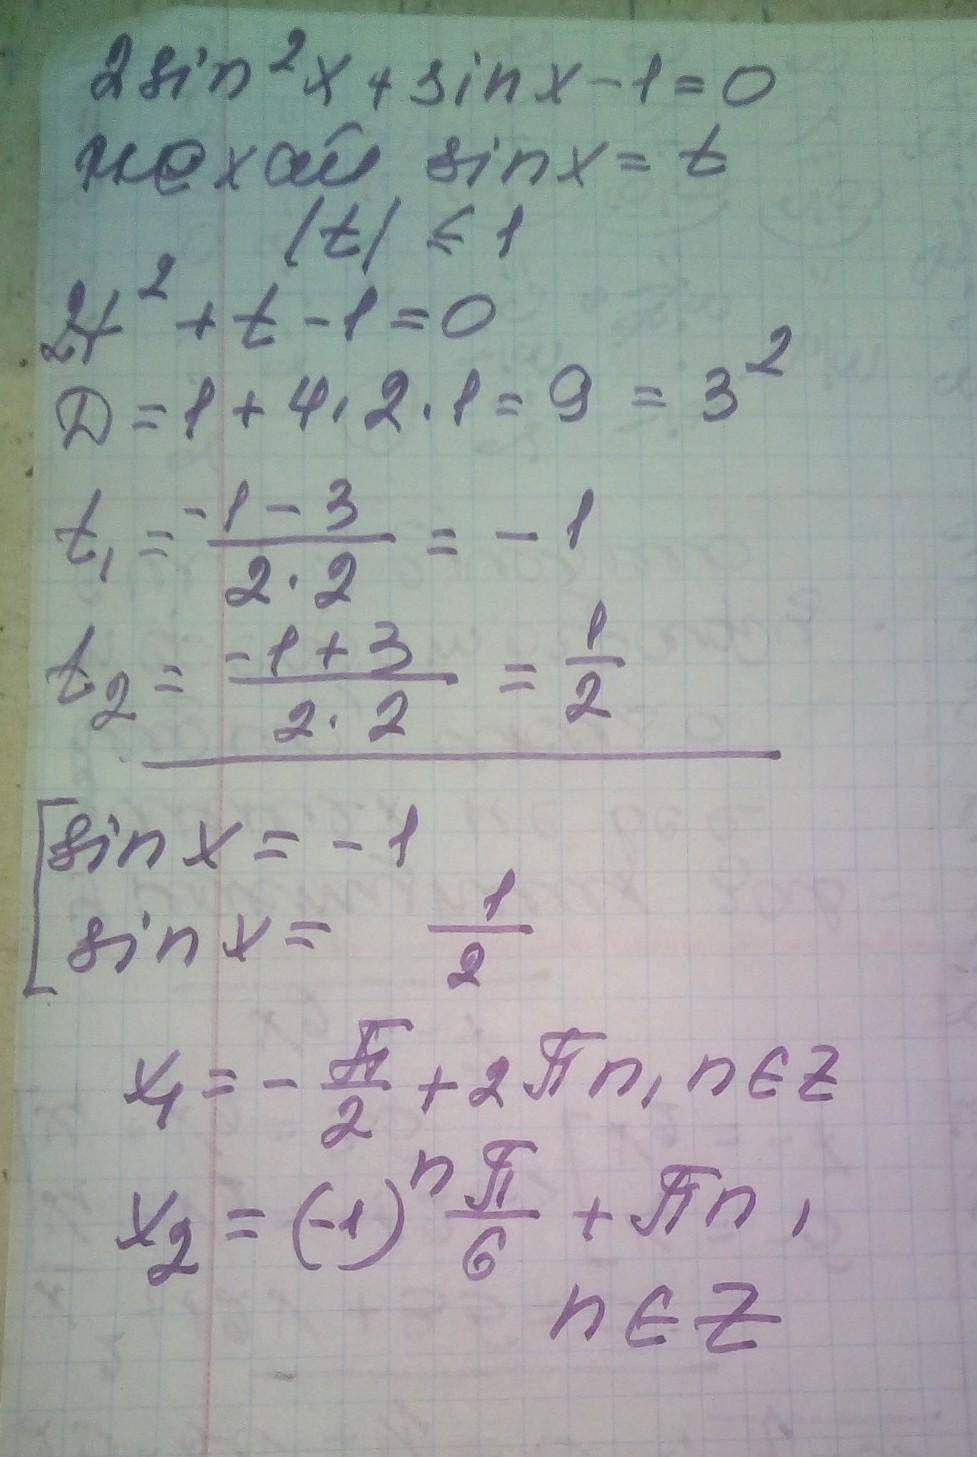 2sin²x + sinx - 1 = 0
Нехай sinx = t
|t| ≤ 1
2t² + t - 1 = 0
D = 1 + 4·2·1 = 9 = 3²
t₁ = (-1 - 3)/(2·2) = -1
t₂ = (-1 + 3)/(2·2) = 1/2
[sinx = -1
sinx = 1/2
x₁ = -π/2 + 2πn, n∈Z
x₂ = (-1)ⁿ π/6 + πn,
n∈Z